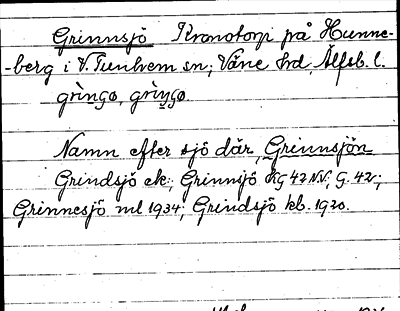 Grinnsjö Kronotorp på Hunne-
-berg i V. Tunhem sn; Väne hd, Älfsb. l.
grìngo, grìŋgo.
Namn efter sjö där, Grinnsjön
Grindsjö ek; Grinnsjö RG 42 NV, G. 42;
Grinnesjö ml 1934; Grindsjö kb. 1920.